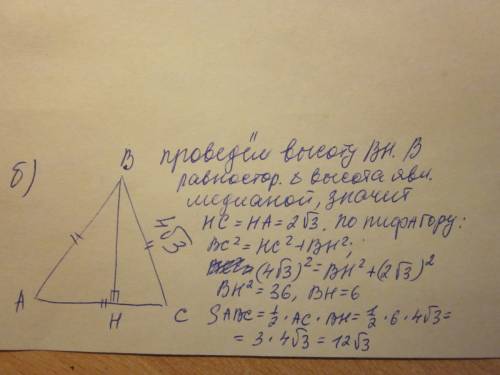 б)
B
4√3
A
H
C
проведём высоту BH. В
равностор. Δ высота явл.
медианой, значит
HC = HA = 2√3. По пифагору:
BC² = HC² + BH²;
(4√3)² = BH² + (2√3)²
BH² = 36, BH = 6
SABC = ½ · AC · BH = ½ · 6 · 4√3 =
= 3 · 4√3 = 12√3